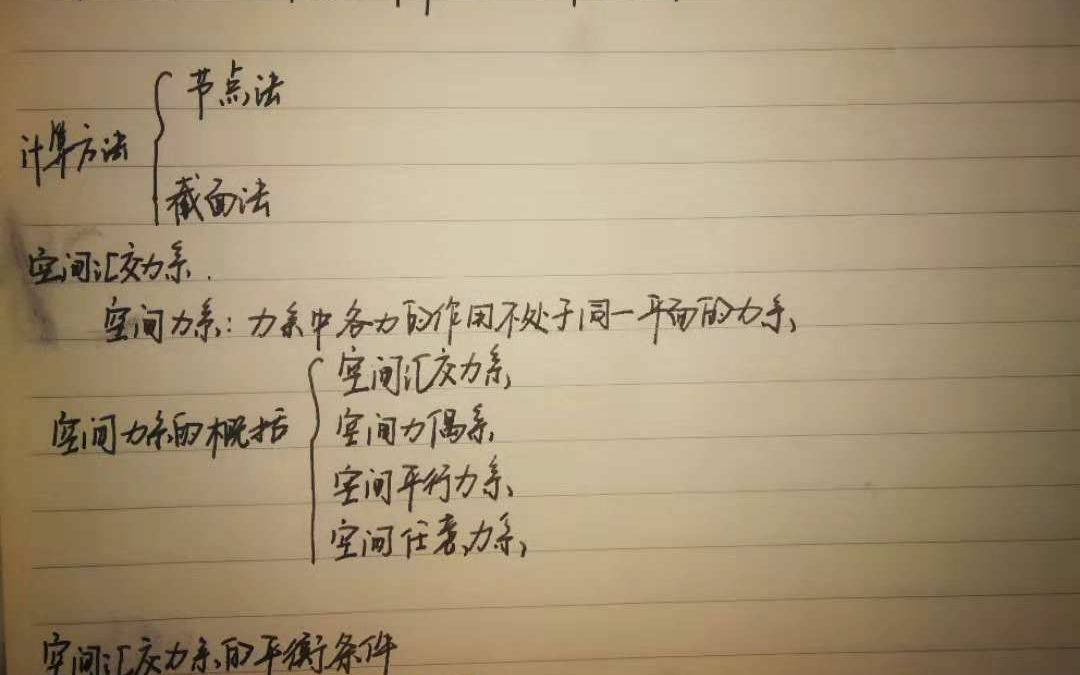 节点法
计算方法
截面法
空间汇交力系.
空间力系:力系中各力的作用不处于同一平面的力系,
空间汇交力系,
空间力偶系,
空间力系的概括
空间平行力系,
空间任意力系,
空间汇交力系的平衡条件